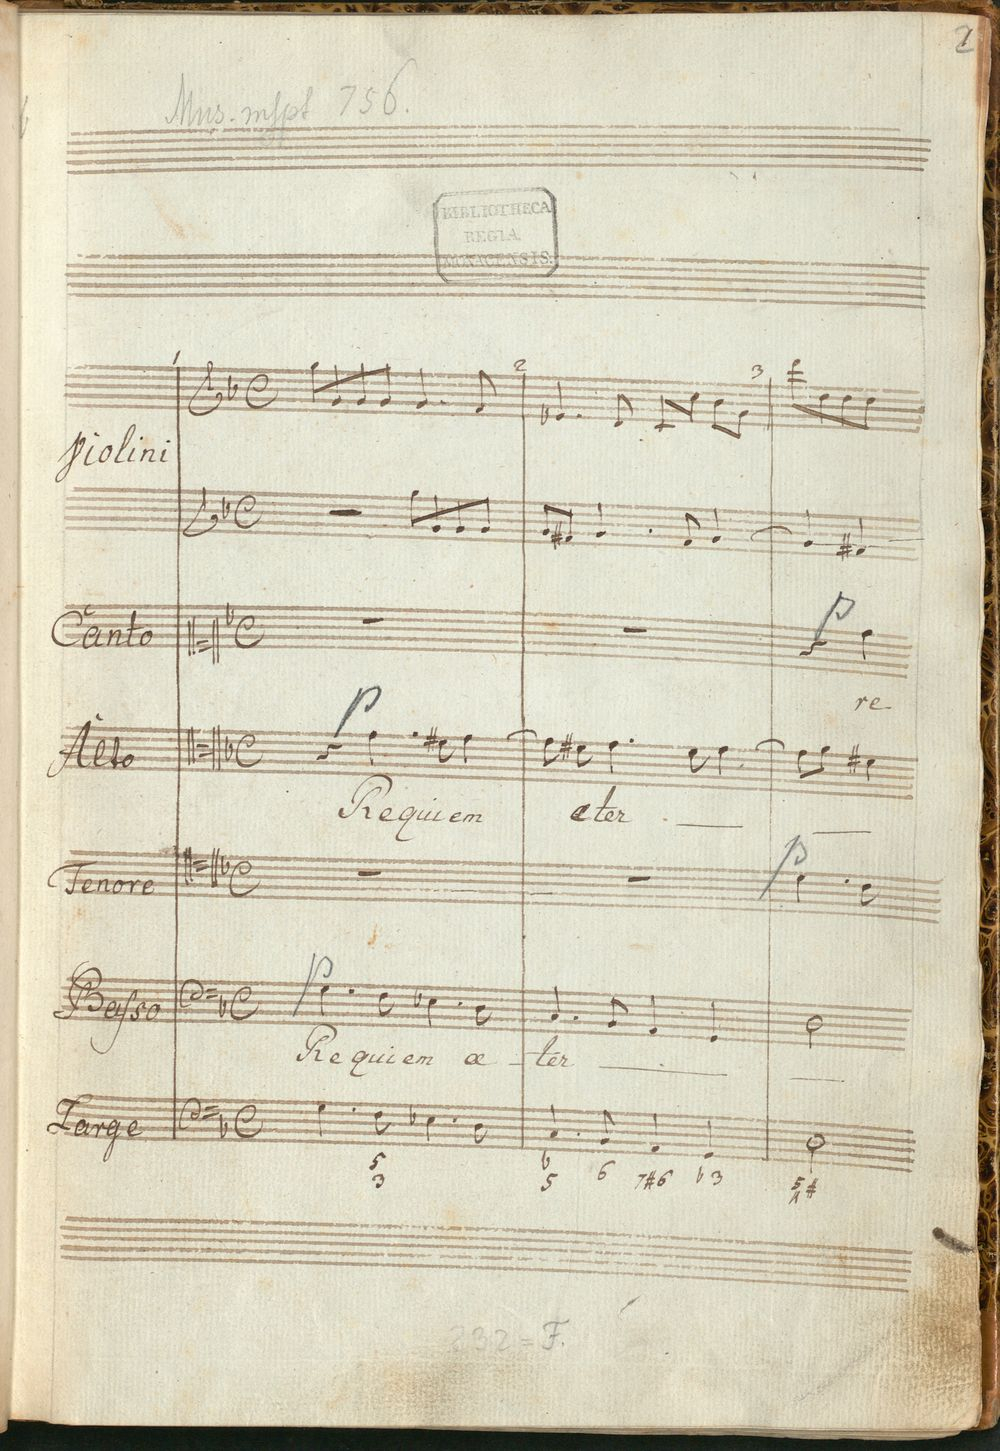 2
Mus. mspt 756.
BIBLIOTHECA
REGIA
MONACENSIS.
1 2 3
Violini
Canto
p
re
Alto
p
Requiem eter
Tenore
p
Basso
p
Requiem æ - ter
Large
5 b 6 7#6 b3 5#
3 5
232 = F.